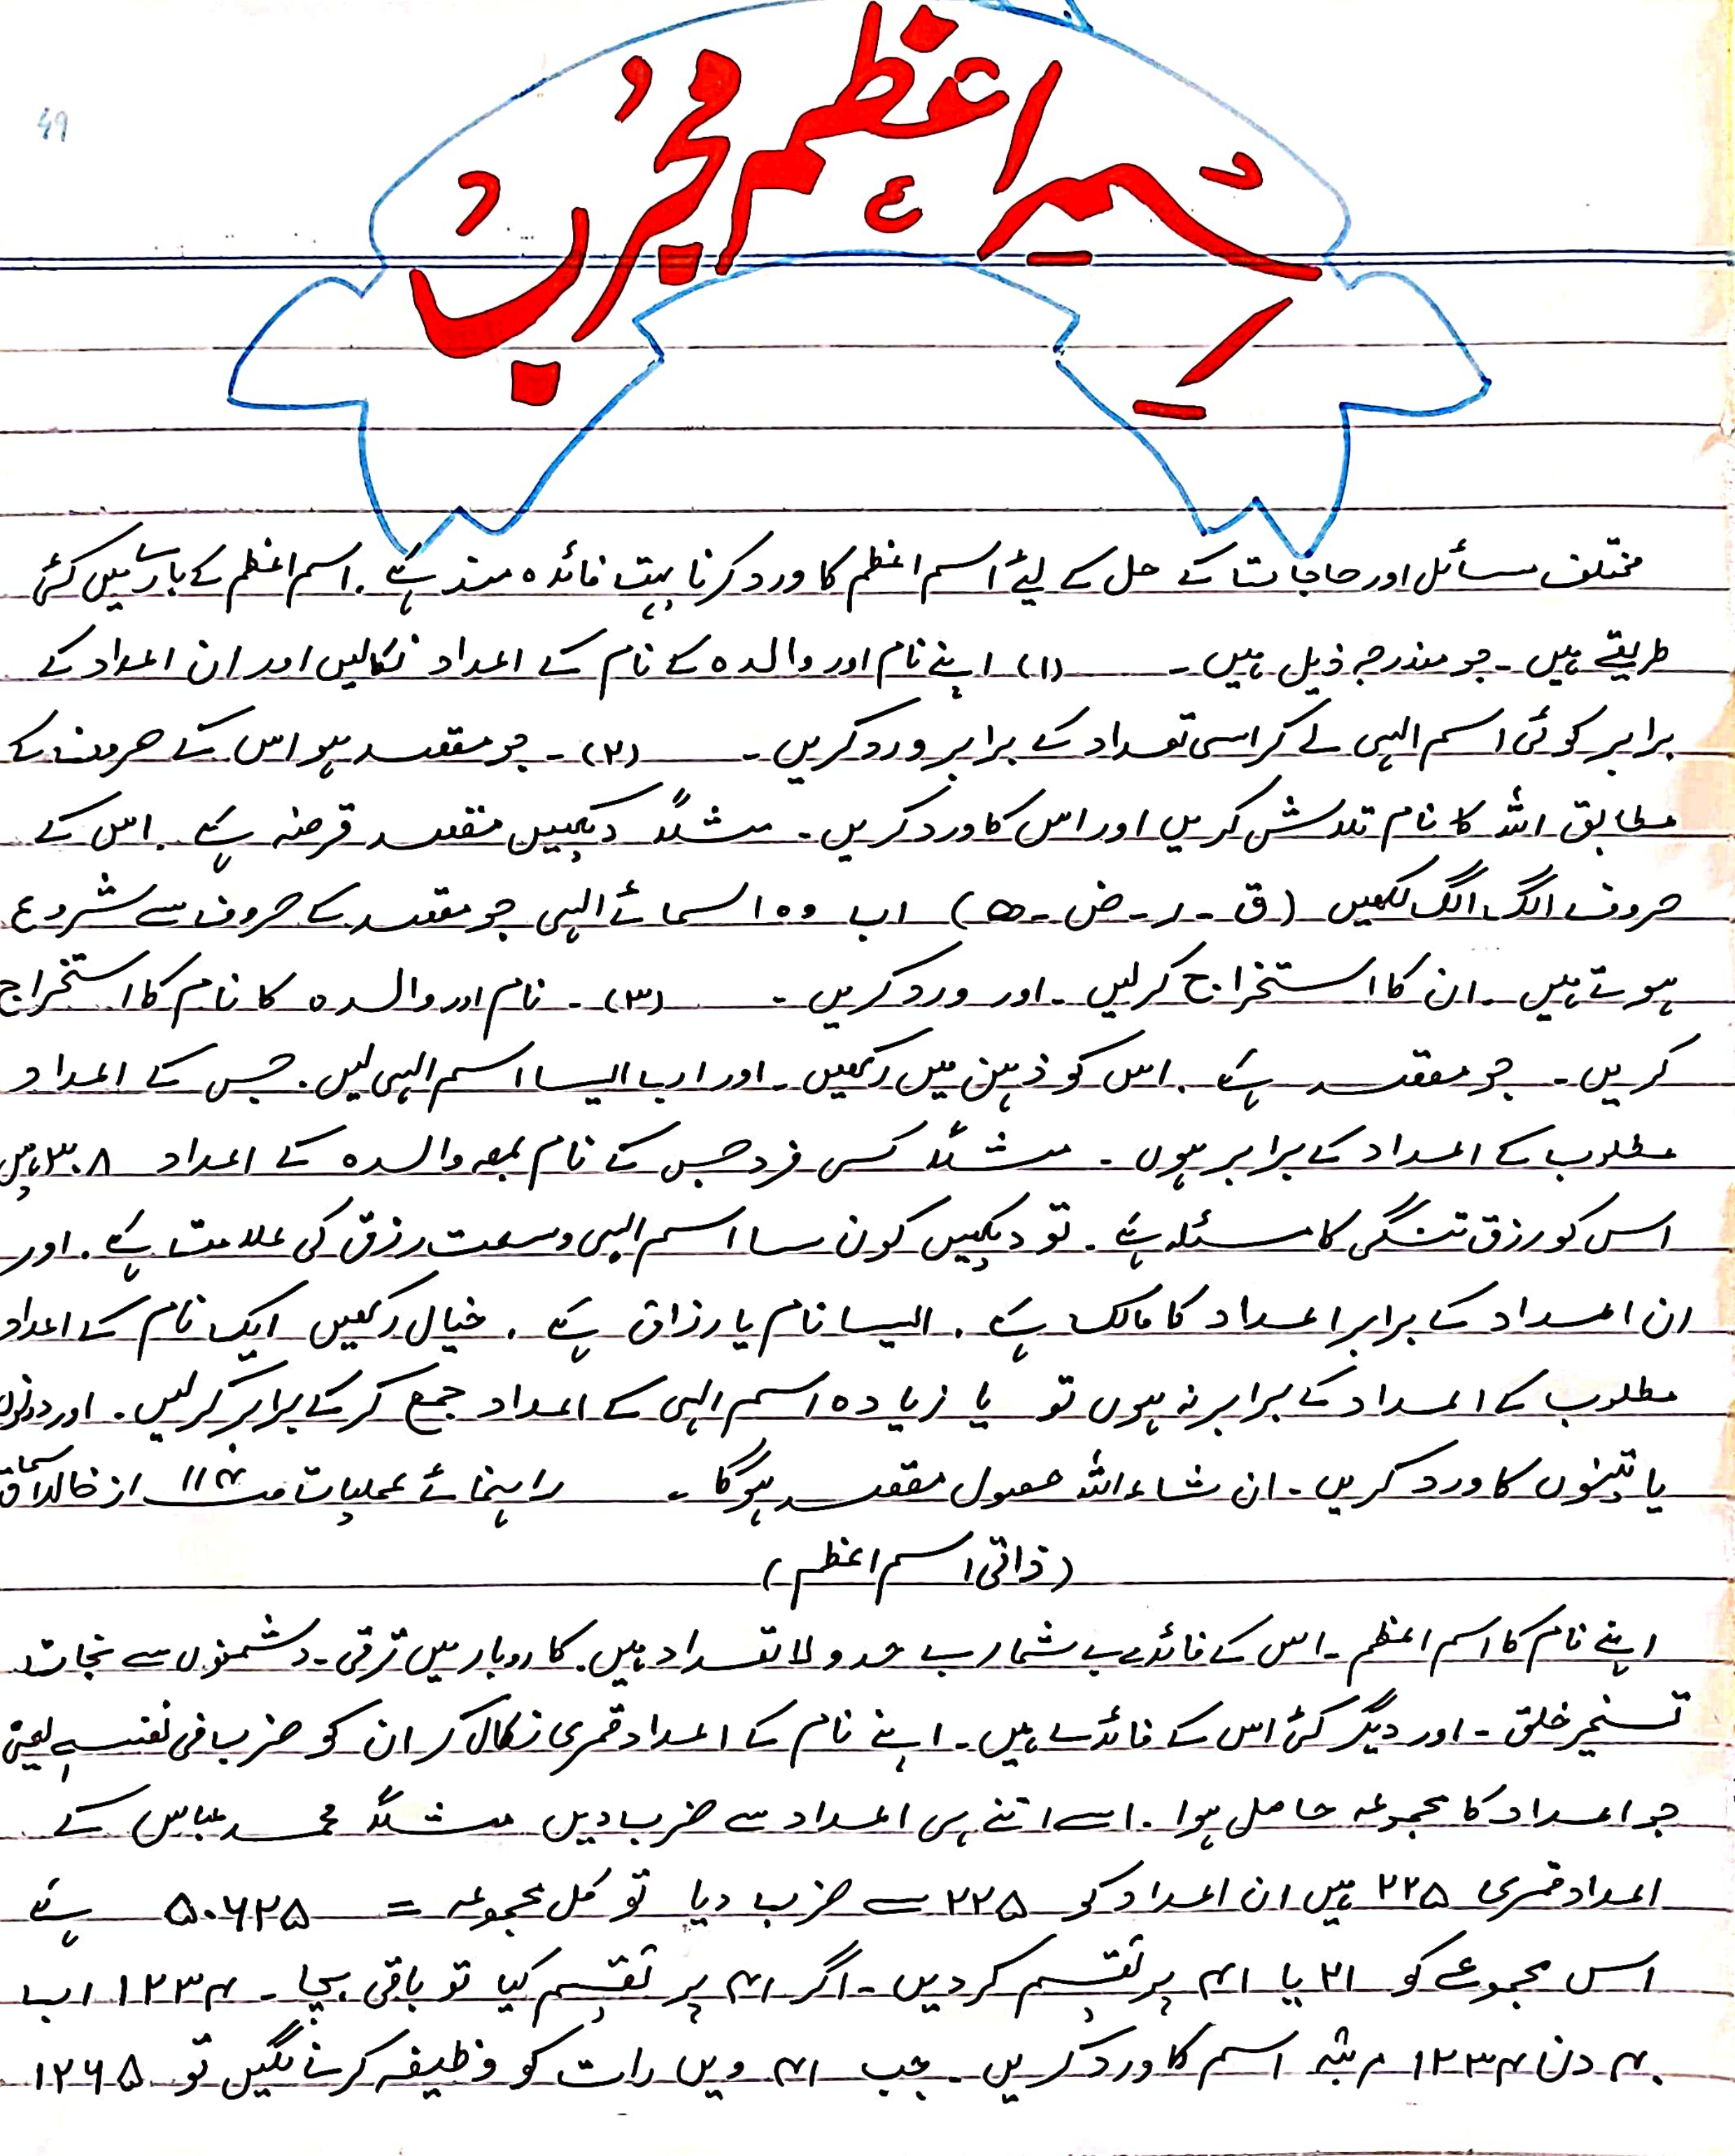 ۴۹
اِسمِ اعْظم مجُرّب
مختلف مسائل اور حاجات کے حل کے لیئے اسم اعظم کا ورد کرنا بہت فائدہ مند ہے . اسم اعظم کے بارے میں کئی
طریقے ہیں ۔ جو مندرجہ ذیل ہیں ۔ (۱) اپنے نام اور والدہ کے نام کے اعداد نکالیں اور ان اعداد کے
برابر کوئی اسم الہی لے کر اسی تعداد کے برابر ورد کریں ۔ (۲) ۔ جو مقصد ہو اس کے حروف کے
مطابق اللہ کا نام تلاش کریں اور اس کا ورد کریں ۔ مثلاً دیکھیں مقصد قرضہ ہے . اس کے
حروف الگ الگ لکھیں (ق ۔ ر ۔ ض ۔ ہ) اب وہ اسمائے الہی جو مقصد کے حروف سے شروع
ہوتے ہیں ۔ ان کا استخراج کرلیں ۔ اور ورد کریں ۔ (۳) ۔ نام اور والدہ کا نام کا استخراج
کریں ۔ جو مقصد ہے . اس کو ذہن میں رکھیں ۔ اور اب ایسا اسم الہی لیں . جس کے اعداد
مطلوب کے اعداد کے برابر ہوں ۔ مثلاً کسی فرد جس کے نام بمعہ والدہ کے اعداد ۳۰۸ ہیں
اس کو رزق تنگی کا مسئلہ ہے . تو دیکھیں کون سا اسم الہی وسعت رزق کی علامت ہے . اور
ان اعداد کے برابر اعداد کا مالک ہے . ایسا نام یا رزاق ہے . خیال رکھیں ایک نام کے اعداد
مطلوب کے اعداد کے برابر نہ ہوں تو یا زیادہ اسم الہی کے اعداد جمع کر کے برابر کرلیں . اور دونوں
یا تینوں کا ورد کریں ۔ ان شاءاللہ حصول مقصد ہوگا ۔ راہنمائے عملیات ص ۱۱۴ از خالد اسحاق
(ذاتی اسم اعظم)
اپنے نام کا اسم اعظم ۔ اس کے فائدے بے شمار بے حد و لا تعداد ہیں . کاروبار میں ترقی ۔ دشمنوں سے نجات
تسخیر خلق ۔ اور دیگر کئی اس کے فائدے ہیں ۔ اپنے نام کے اعداد قمری نکال کر ان کو ضرب فی نفسہ یعنی
جو اعداد کا مجموعہ حاصل ہوا . اسے اتنے ہی اعداد سے ضرب دیں مثلاً محمد عباس کے
اعداد قمری ۲۲۵ ہیں ان اعداد کو ۲۲۵ سے ضرب دیا تو کل مجموعہ = ۵۰۶۲۵ ہے
اس مجموعے کو ۲۱ یا ۴۱ پر تقسیم کر دیں ۔ اگر ۴۱ پر تقسیم کیا تو باقی بچا ۔ ۱۲۳۴ اب
۴۰ دن ۱۲۳۴ مرتبہ اسم کا ورد کریں ۔ جب ۴۱ ویں رات کو وظیفہ کرنے لگیں تو ۱۲۶۵